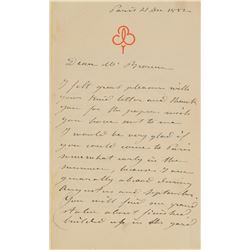 Paris 21 Dec 1882
Dear Mr Browne
I felt great pleasure with
your kind letter and thank
you for the papers wich
you have sent to me
I would be very glad if
you could come to Paris
somewhat early in the
summer, because I am
generally absent during
August and September
You will find our grand
statue about finished
builded up in the yard